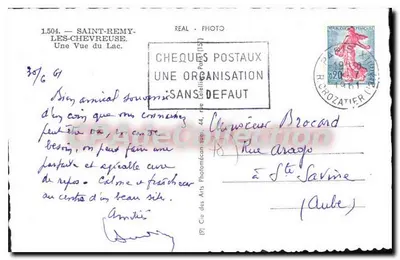 1.504. — SAINT-REMY-
LES-CHEVREUSE.
Une Vue du Lac.
REAL - PHOTO
CHEQUES POSTAUX
UNE ORGANISATION
SANS DEFAUT
R. CROZATIER
30/6 61
Bien amical souvenir
d'un coin que vous connaissez
peut être
besoin, on peut faire une
parfaite et agréable cure
de repos. Calme et fraîcheur
au centre d'un beau site.
Amitié
Monsieur Brocard
Rue Arago
à Ste Savine
(Aube)